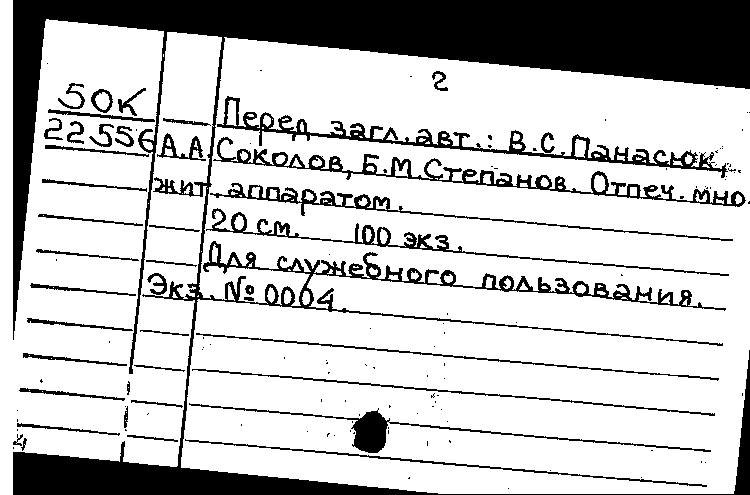 2
50К
22556
Перед загл. авт.: В.С. Панасюк,
А.А. Соколов, Б.М. Степанов. Отпеч. мно-
жит. аппаратом.
20 см. 100 экз.
Для служебного пользования.
Экз. №0004.